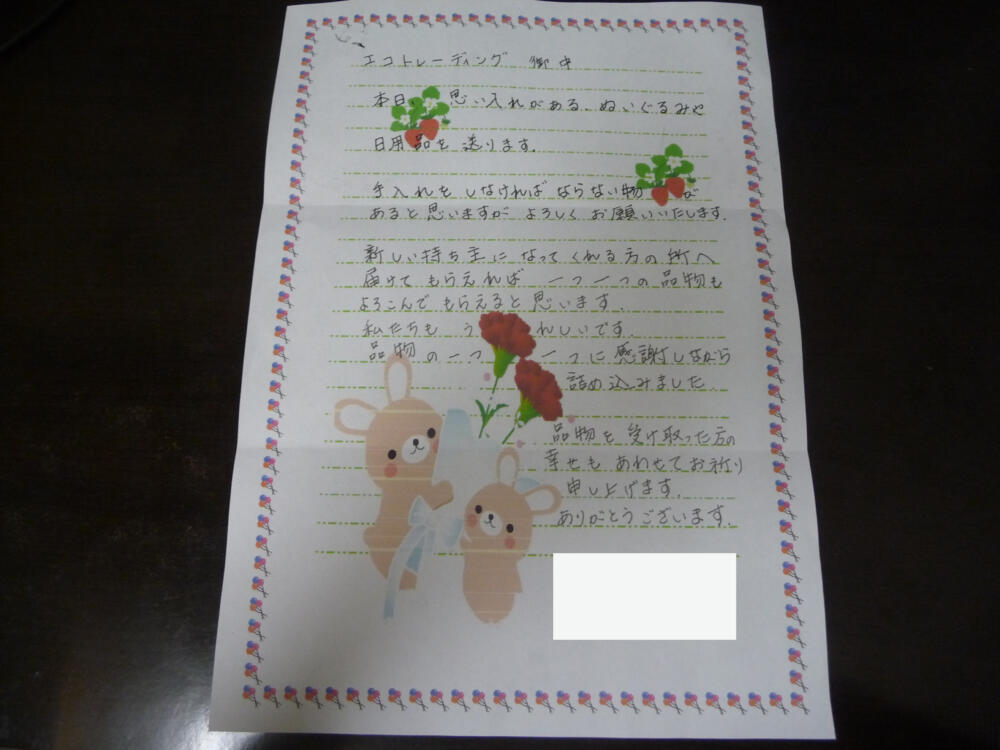 エコトレーディング 御中
本日、思い入れがある、ぬいぐるみや
日用品を送ります。
手入れをしなければならない物が
あると思いますがよろしくお願いいたします。
新しい持ち主になってくれる方の所へ
届けてもらえれば一つ一つの品物も
よろこんでもらえると思います。
私たちもうれしいです。
品物の一つ一つに感謝しながら
詰め込みました
品物を受け取った方の
幸せもあわせてお祈り
申し上げます。
ありがとうございます。